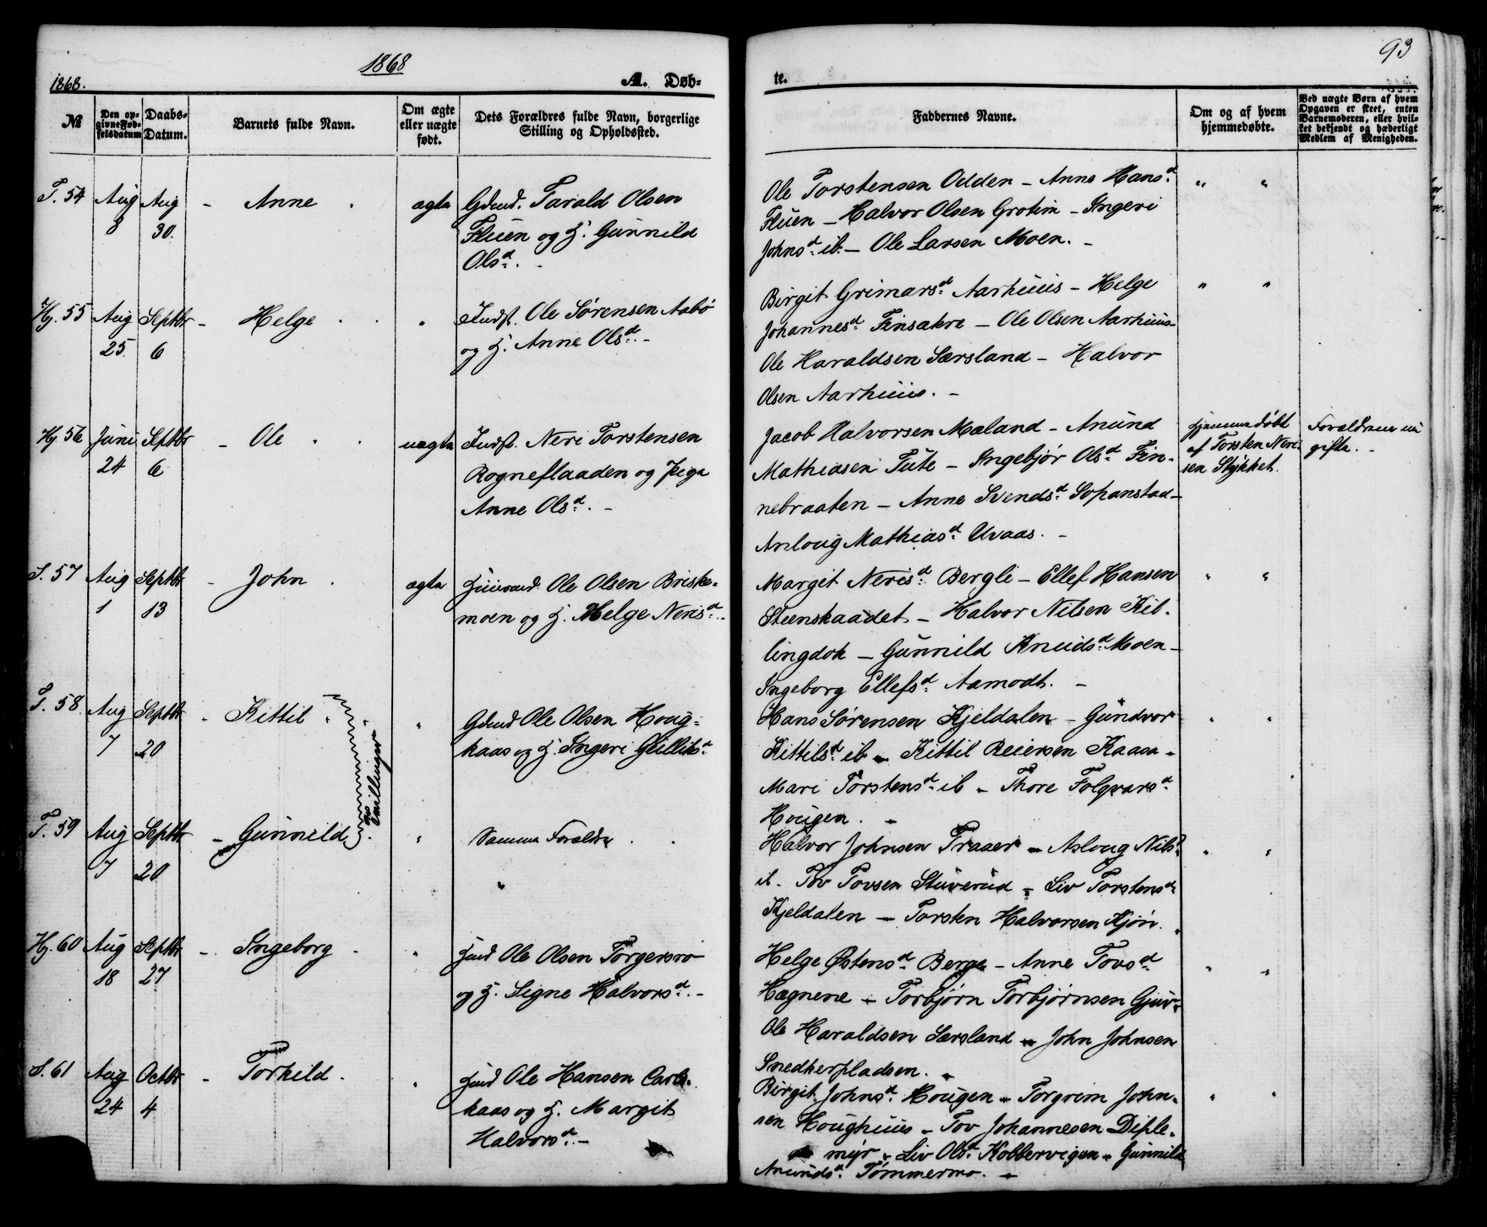 1868
1868.
A. Døb-
te.
93
№
Den op-
givne Fød-
selsdatum
Daabs-
Datum.
Barnets fulde Navn.
Om ægte
eller uægte
født.
Dets Forældres fulde Navn, borgerlige
Stilling og Opholdssted.
Faddernes Navne.
Om og af hvem
hjemmedøbte.
Ved uægte Børn af hvem
Opgaven er skeet, enten
Barnemoderen, eller hvil-
ket bekjendt og hæderligt
Medlem af Menigheden.
T. 54 Aug Aug - Anne . ægta Gdmd. Tarald Olsen
8 30. Fluen og H. Gunnild
Olsd. -
Ole Torstensen Odden - Anne Hansd.
Fluen - Halvor Olsen Grotim - Ingeri
Johnsd. ib. - Ole Larsen Moen. -
Hj. 55 Aug Septbr - Helge . . " Indst. Ole Sørensen Aabø
25. 6 og H. Anne Olsd. -
Birgit Grimarsd. Aarhuus - Helge
Johannesd. Finsakre - Ole Olsen Aarhuus-
Ole Haraldsen Særsland - Halvor
Olsen Aarhuus. -
Hj 56 Juni Septbr - Ole . . uægta Indst. Neri Torstensen
24 6 Rogneflaaden og Piga
Anne Olsd. -
Jacob Halvorsen Mæland - Anund
Mathiasen Tute - Ingebjør Olsd. Fin-
nebraaten - Anne Svendsd. Sopanstad-
Anloug Mathiasd. Uvaas. -
hjemmedøbt
af Torsten Neri-
sen Stykket.
Forældrene u
gifta. -
S. 57 Aug Septbr - John . ægta Huusmd. Ole Olsen Briske-
1 13 moen og H. Helge Nerisd. -
Margit Nerisd. Bergli - Ellef Hansen
Steenskaadet - Halvor Nilsen Kil-
lingdok - Gunnild Knudsd. Moen -
Ingeborg Ellefsd. Aamodt. -
T. 58 Aug Septbr - Kittil . " Gdmd Ole Olsen Houg-
7 20 kaas og H. Ingeri Gulliksd.
Tvillinger
Hans Sørensen Kjeldalen - Gundvor
Kittilsd. ib - Kittil Reiersen Kaasa -
Mari Torstensd. ib - Thore Folqvarsd.
Hougen. -
T. 59 Aug Septbr - Gunnild . " Samma Forældre . .
7 20 "
Halvor Johnsen Traaer - Asloug Nilsd.
ib. Tov Tovsen Stuverud - Liv Torstensd.
Kjeldalen - Torsten Halvorsen Kjøn.
Hj. 60 Aug Septbr - Ingeborg . " Hmd Ole Olsen Torgersrø
18 27 og H. Signe Halvorsd. -
Helge Østensd. Berge - Anne Tovsd.
Hægnene - Torbjørn Torbjørnsen Gjuv-
Ole Haraldsen Særsland - John Johnsen
Snedkerpladsen. -
S. 61 Aug Octbr - Torkild . " Hmd Ole Hansen Carls-
24 4 kaas og H. Margit
Halvorsd. -
Birgit Johnsd. Hougen - Torgrim John-
sen Houghuus - Tov Johannesen Diple-
myr - Liv Olsd. Kobbervigen - Gunnild
Anundsd. Tømmermo. -